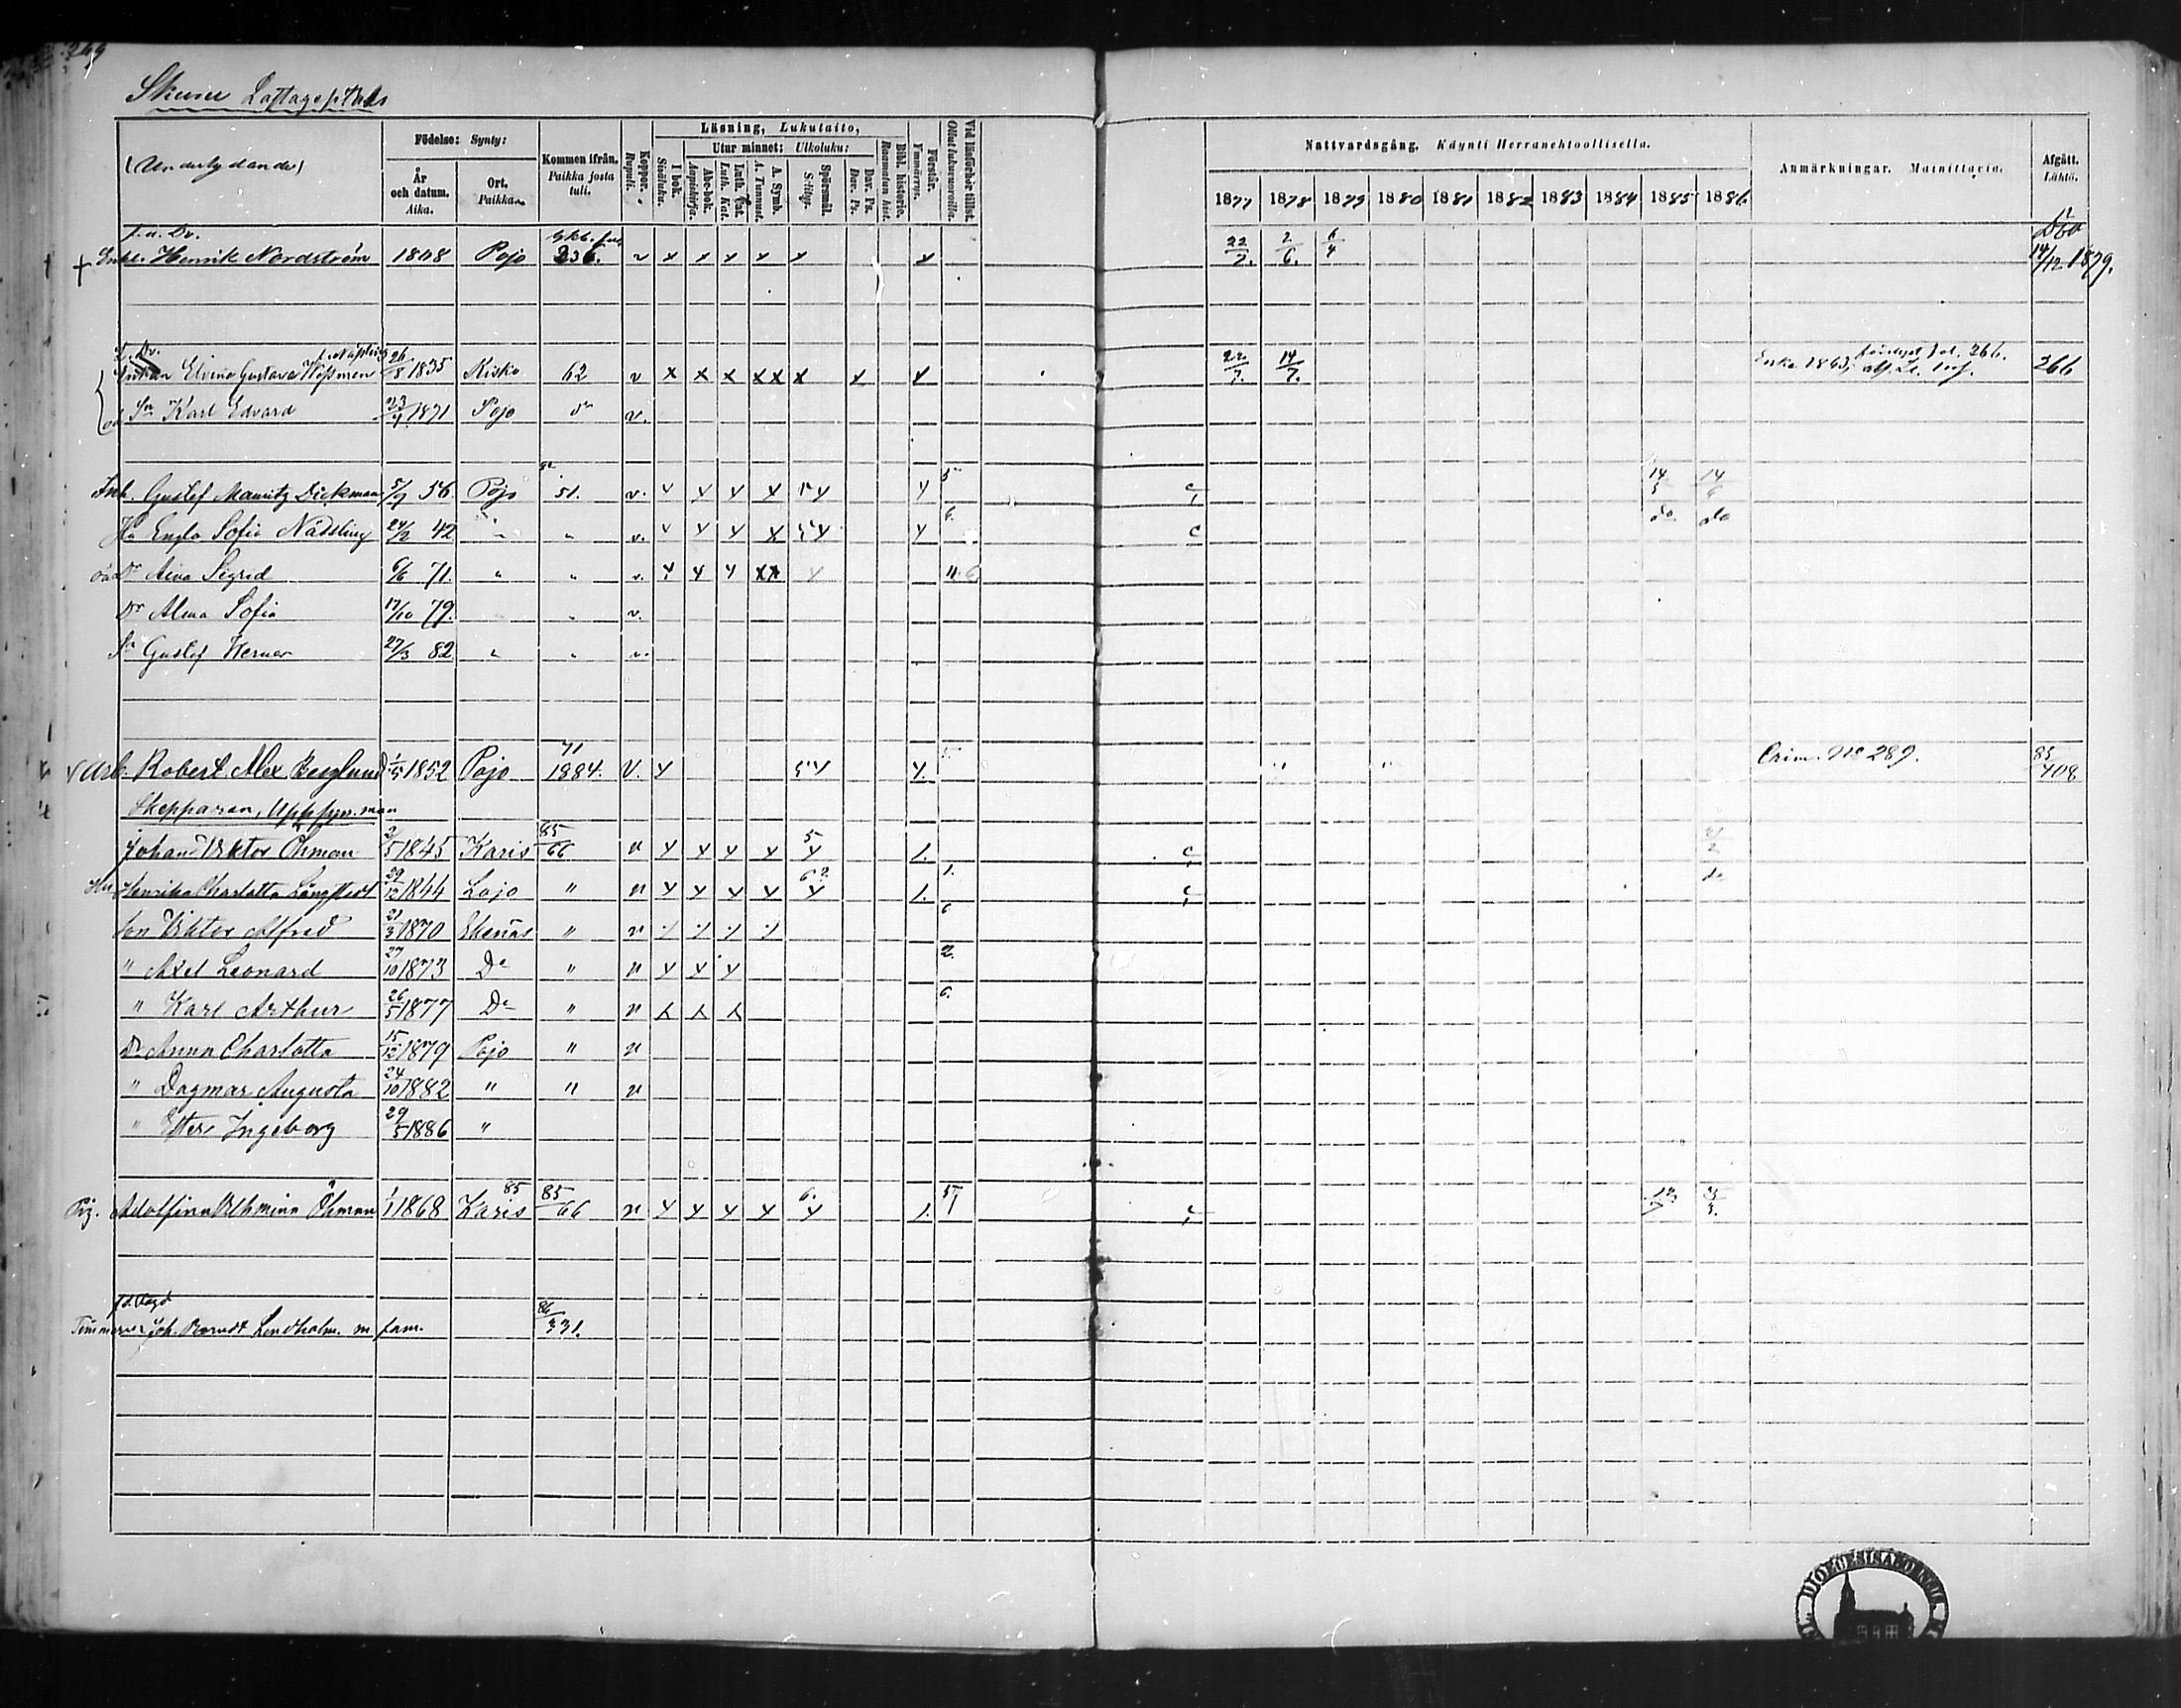 269
Skuru Lastageplats
(Underlydande)
Födelse: Synty:
År och datum. Aika.
Ort. Paikka.
Kommen ifrån. Paikka josta tuli.
Koppor. Rupuli.
Läsning, Lukutaito,
I bok. Sisäluku.
Utur minnet: Ulkoluku:
Abc-bok. Aapiskirja.
Luth. Kat. Luth. Kat.
A. Symb. A. Tunnust.
Spörsmål. Selitys.
Dav. Ps. Dav. Ps.
Bibl. historie. Raamatun hist.
Förstår. Ymmärrys.
Vid läsförhör tillst. Ollut lukuvuorolla.
Nattvardsgång. Käynti Herranehtoollisella.
1877 1878 1879 1880 1881 1882 1883 1884 1885 1886
Anmärkningar. Muistuttavia.
Afgått. Lähtö.
f. a. Dv.
Enkl. Henrik Nordström 1808 Pojo 236. v x x x x x x 22/7. 2/6. 6/4 Död 14/12 1879.
Elvina Gustava 26/8 1835 Kisko 62 v x x x xx x x x 22/7. 14/7. Enka 1863; 366. 266
Sn Karl Edvard 23/4 1871 Pojo do v.
Inh. Gustef Mauritz Dickman 5/9 56 Pojo 51. v. 14 14/6
Hu Engla Sofia Nädsling 24/2 42 " " v. do do
Dr Aina Sigrid 6/6 71. " " v.
Dr Alma Sofia 17/10 79. " v.
Sn Gustef Werner 27/3 82 " " v.
Arb. Robert Alex Berglund 1/5 1852 Pojo 71 1884. v. Crim. No 289. 85/408
Skepparen,
Johan Viktor Öhman 2/5 1845 Karis 85/66 v
Hu Henrika Charlotta Långstedt 29/12 1844 Lojo " v do
Son Viktor Alfred 21/3 1870 Ekenäs " v
" Axel Leonard 27/10 1873 Do " v 2.
" Karl Arthur 26/5 1877 Do " v 6.
Dr Anna Charlotta 15/12 1879 Pojo " v
" Dagmar Augusta 24/10 1882 " " v
" Ester Ingeborg 29/5 1886 "
Pig. Adolfina Vilhmina Öhman 1/1 1868 Karis 85/66 v
f.d. Bagd
Timmerm Joh. Berndt Lindholm. m fam. 86/331.
DIOECESIS ABO